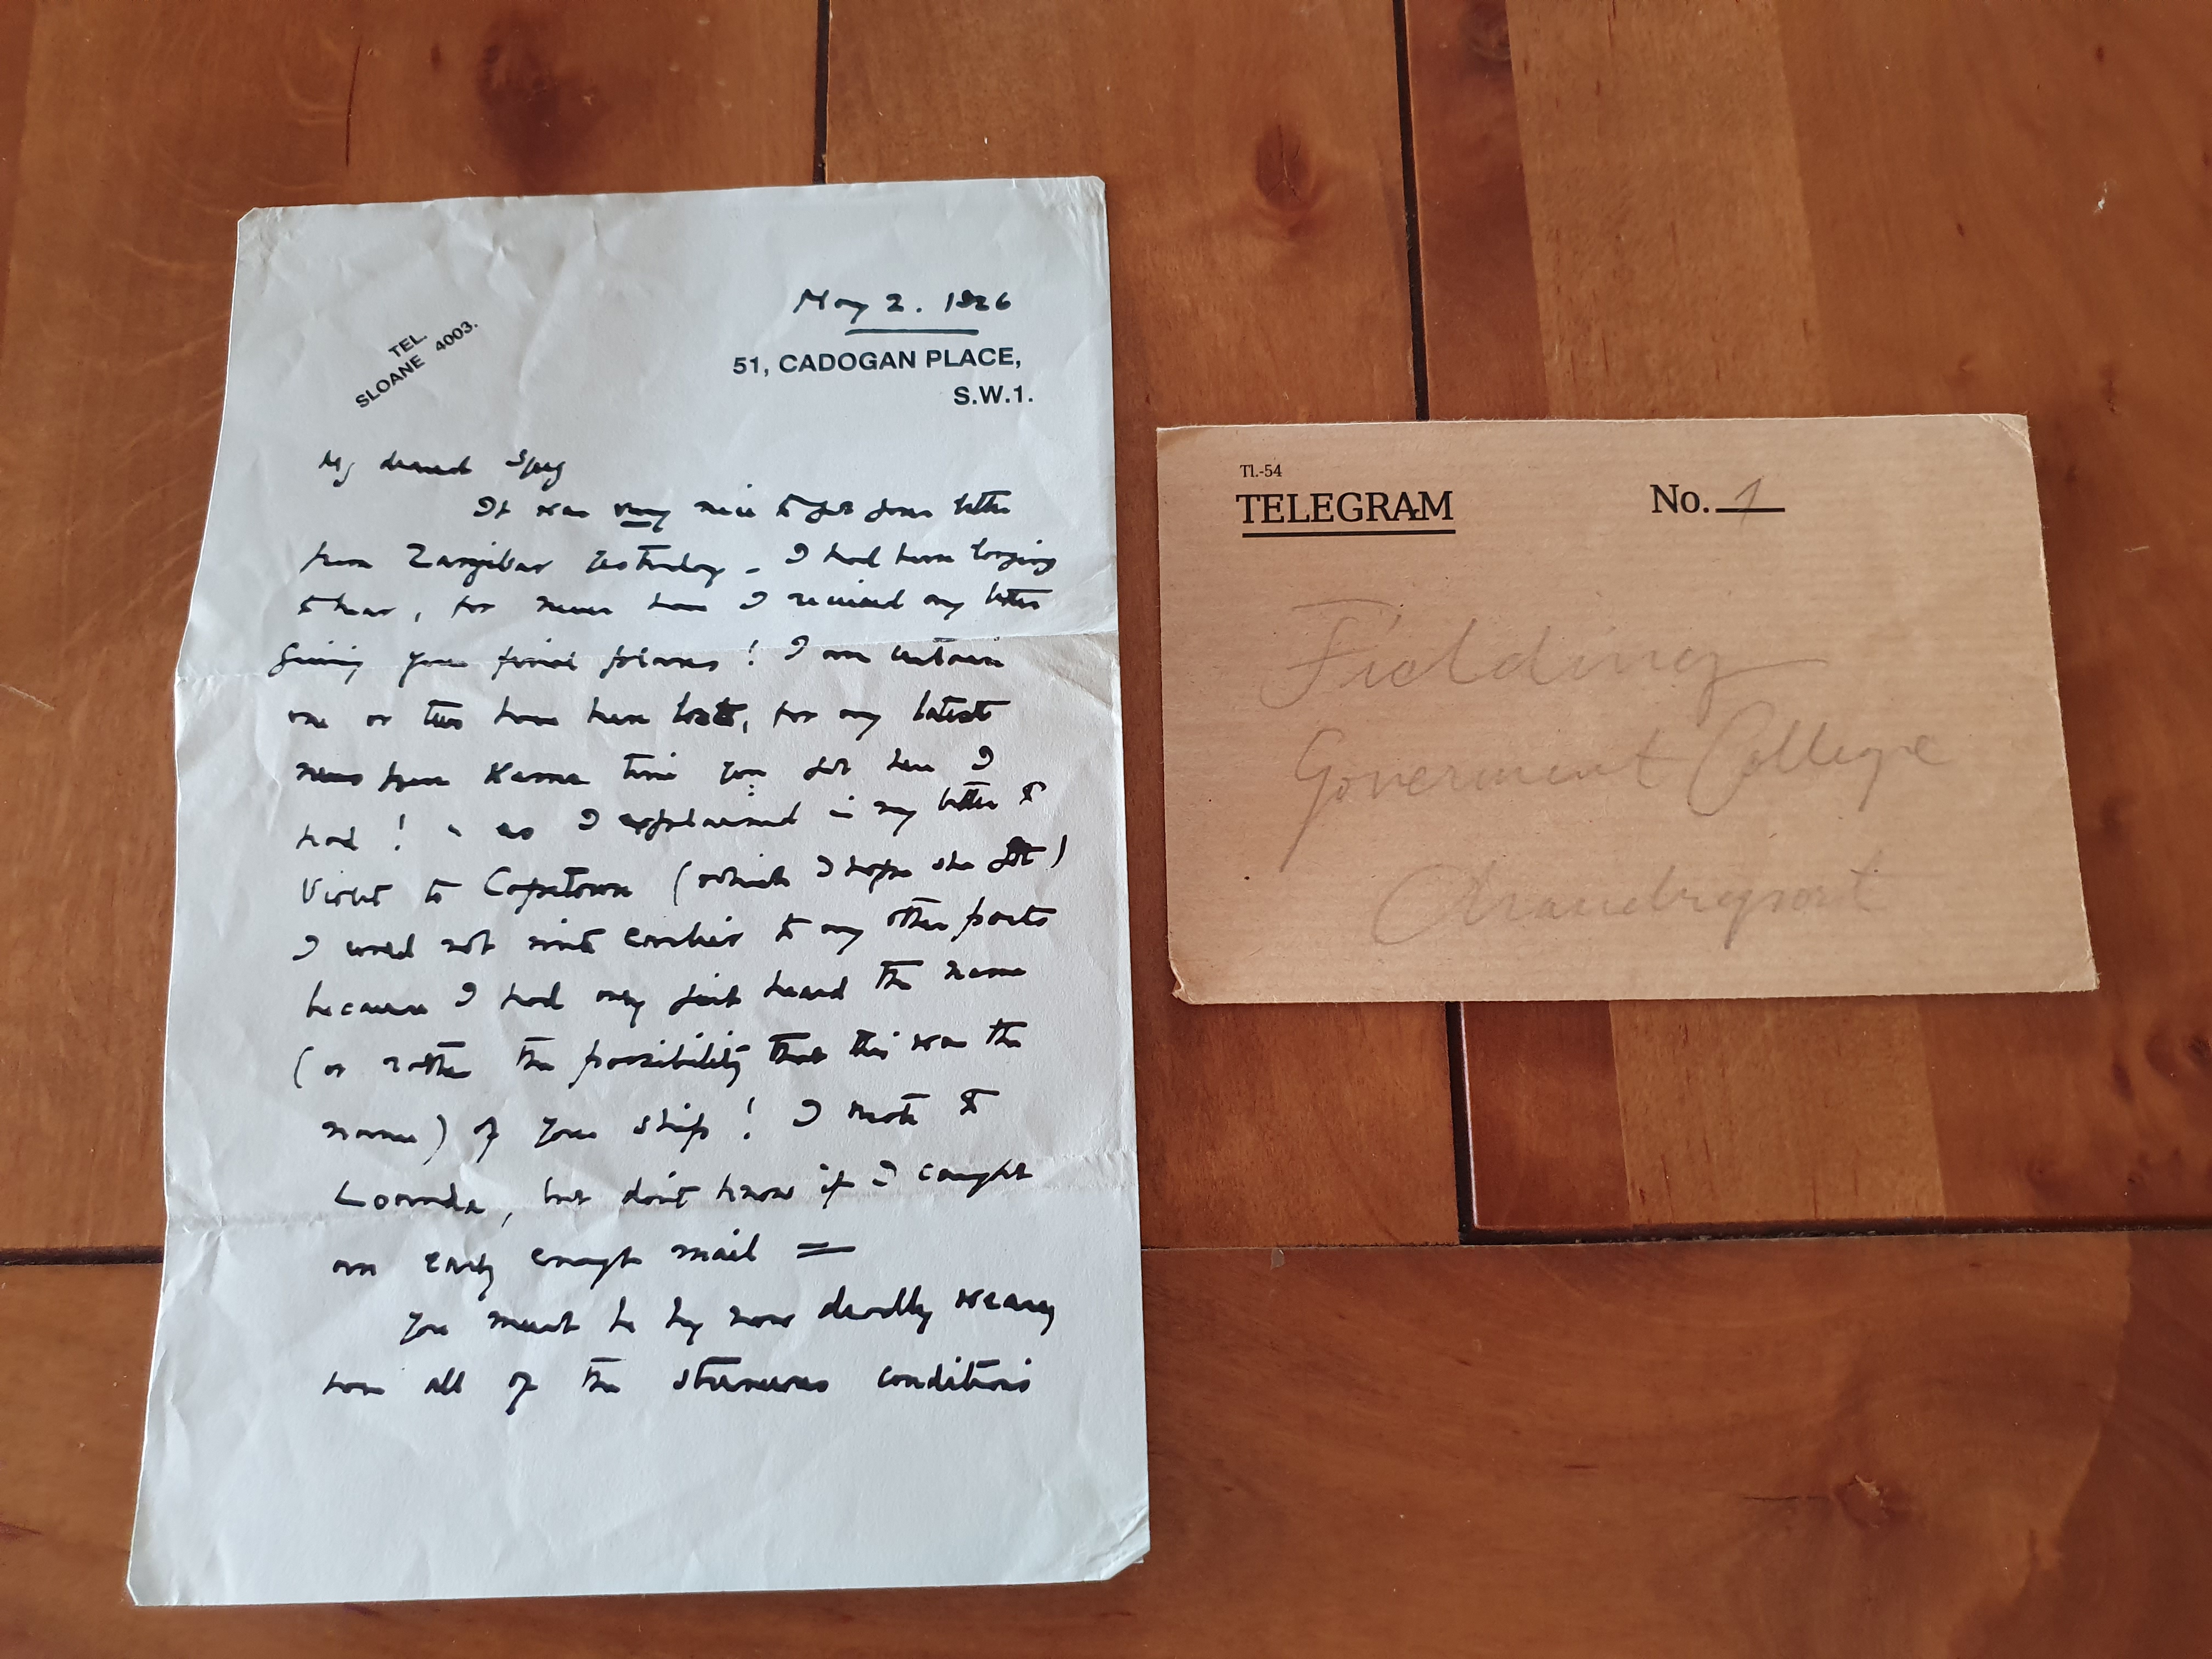 May 2. 1926
TEL.
SLOANE 4003.
51, CADOGAN PLACE,
S.W.1.
My dearest
It was very nice to get your letter
from Zanzibar yesterday - I had been longing
to hear, for never have I received any letter
giving your final plans! I am certain
one or two have been lost, for my latest
news from Karma time you got here I
had! as I explained in my letter to
Violet to Capetown (which I hope she got)
I could not write earlier to any other ports
because I had only just heard the name
(or rather the possibility that this was the
name) of your ship! I wrote to
Loanda, but don't know if I caught
an early enough mail =
You must be by now deadly weary
from all of the strenuous conditions
Tl.-54
TELEGRAM
No. 1
Fielding
Goverment College
Chandrapore